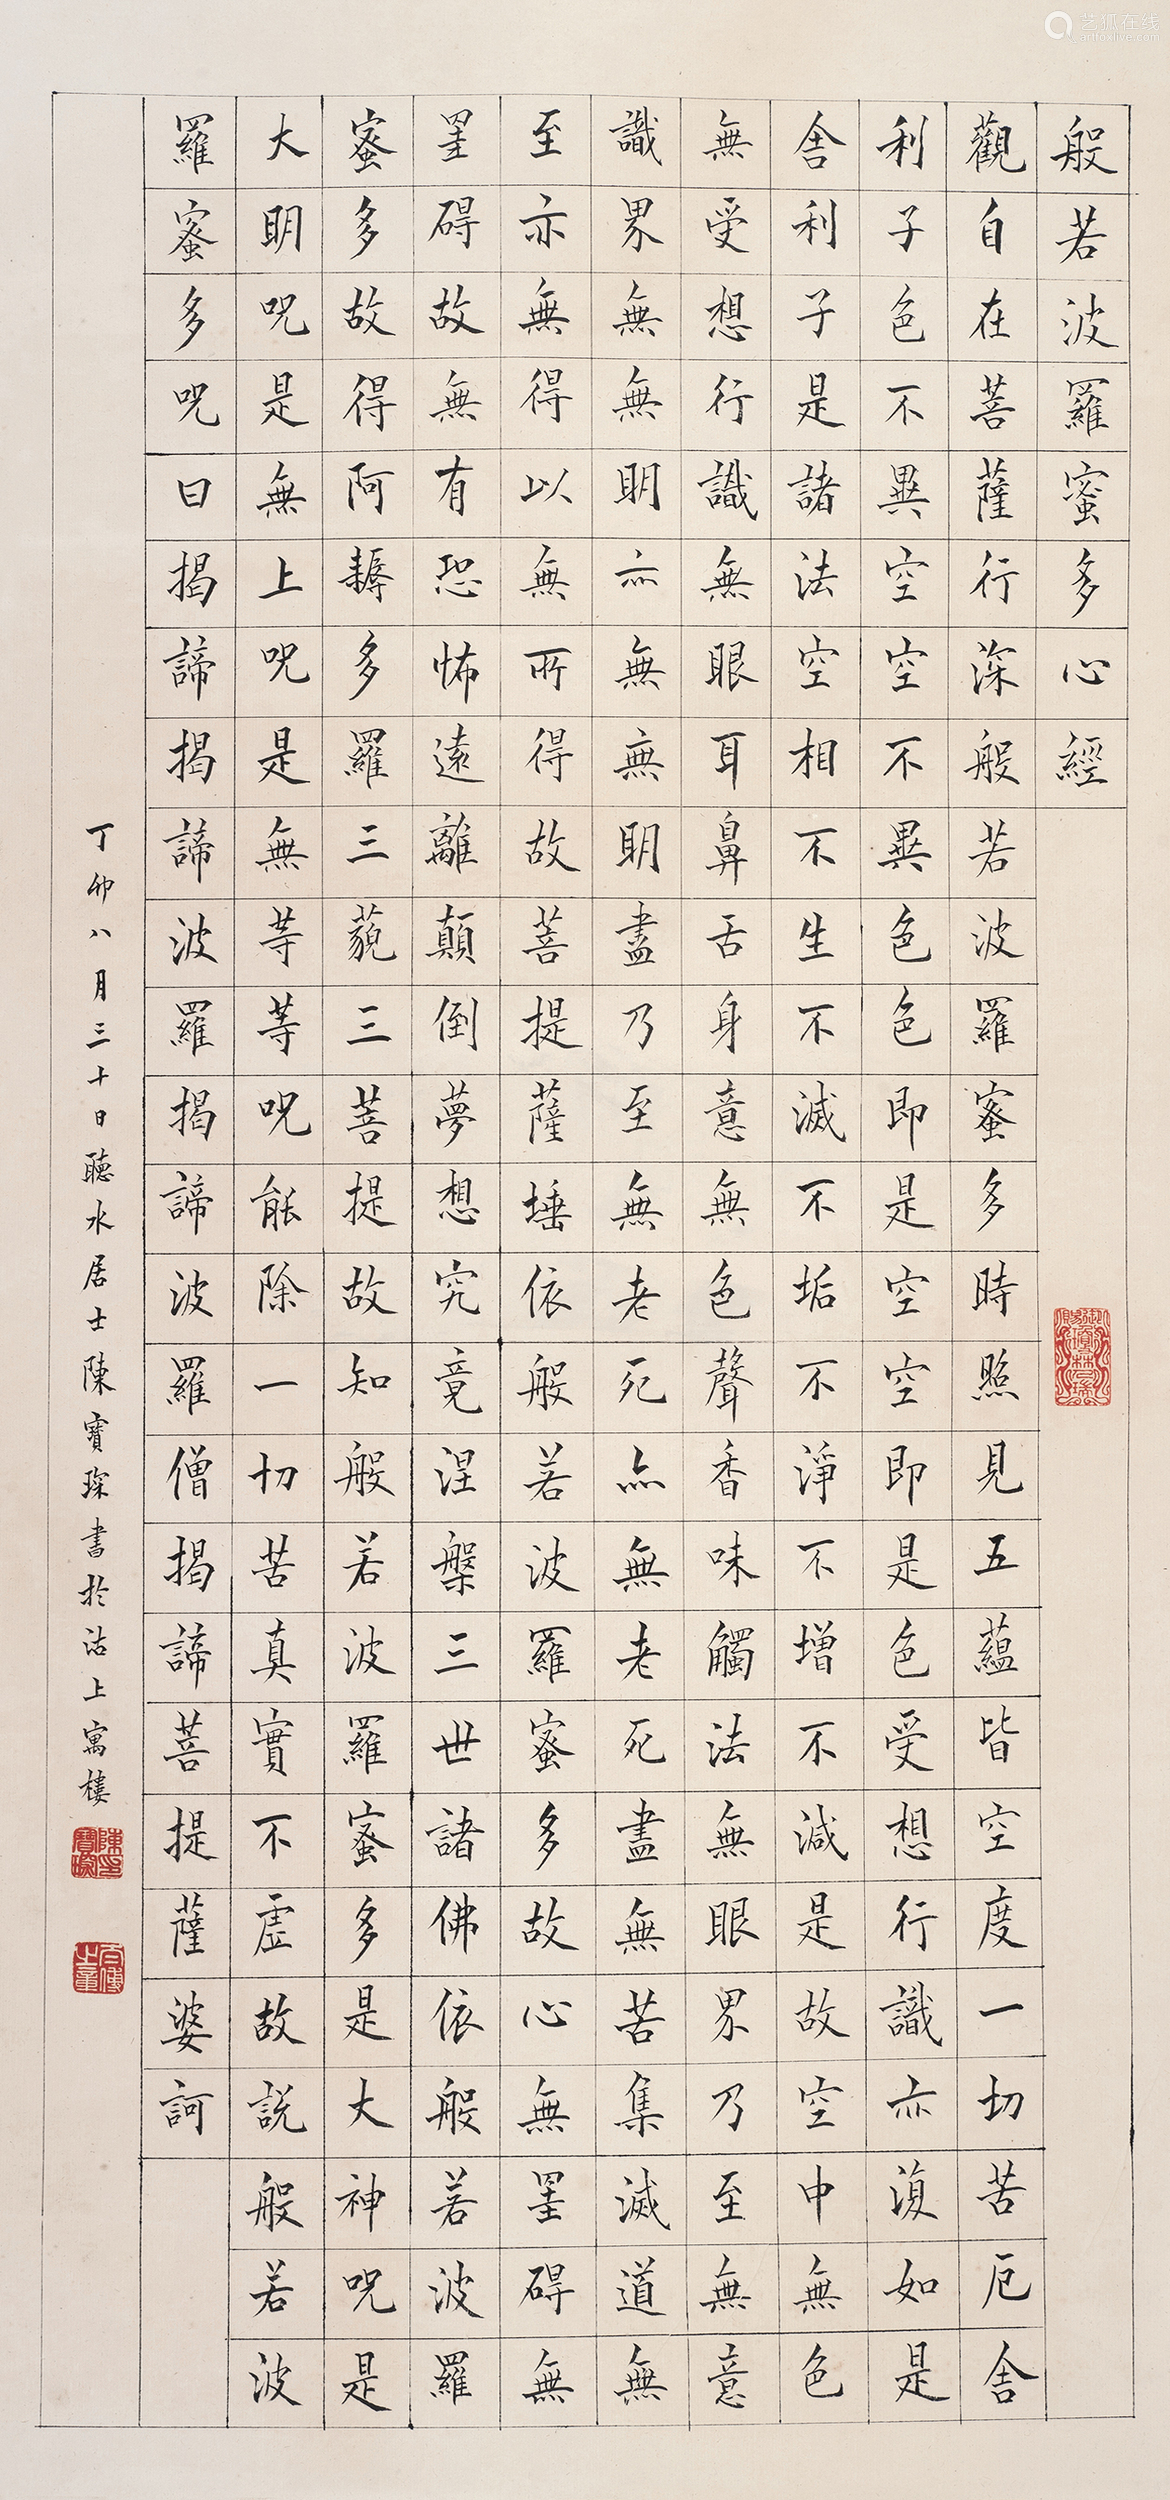 般若波羅蜜多心經
觀自在菩薩行深般若波羅蜜多時照見五蘊皆空度一切苦厄舍
利子色不異空空不異色色即是空空即是色受想行識亦復如是
舍利子是諸法空相不生不滅不垢不淨不增不減是故空中無色
無受想行識無眼耳鼻舌身意無色聲香味觸法無眼界乃至無意
識界無無明亦無無明盡乃至無老死亦無老死盡無苦集滅道無
至亦無得以無所得故菩提薩埵依般若波羅蜜多故心無罣碍無
罣碍故無有恐怖遠離顛倒夢想究竟涅槃三世諸佛依般若波羅
蜜多故得阿耨多羅三藐三菩提故知般若波羅蜜多是大神咒是
大明咒是無上咒是無等等咒能除一切苦真實不虛故說般若波
羅蜜多咒曰揭諦揭諦波羅揭諦波羅僧揭諦菩提薩婆訶
丁卯八月三十日聽水居士陳寶琛書於沽上寓樓
陳印寶琛
艺狐在线
artfoxlive.com